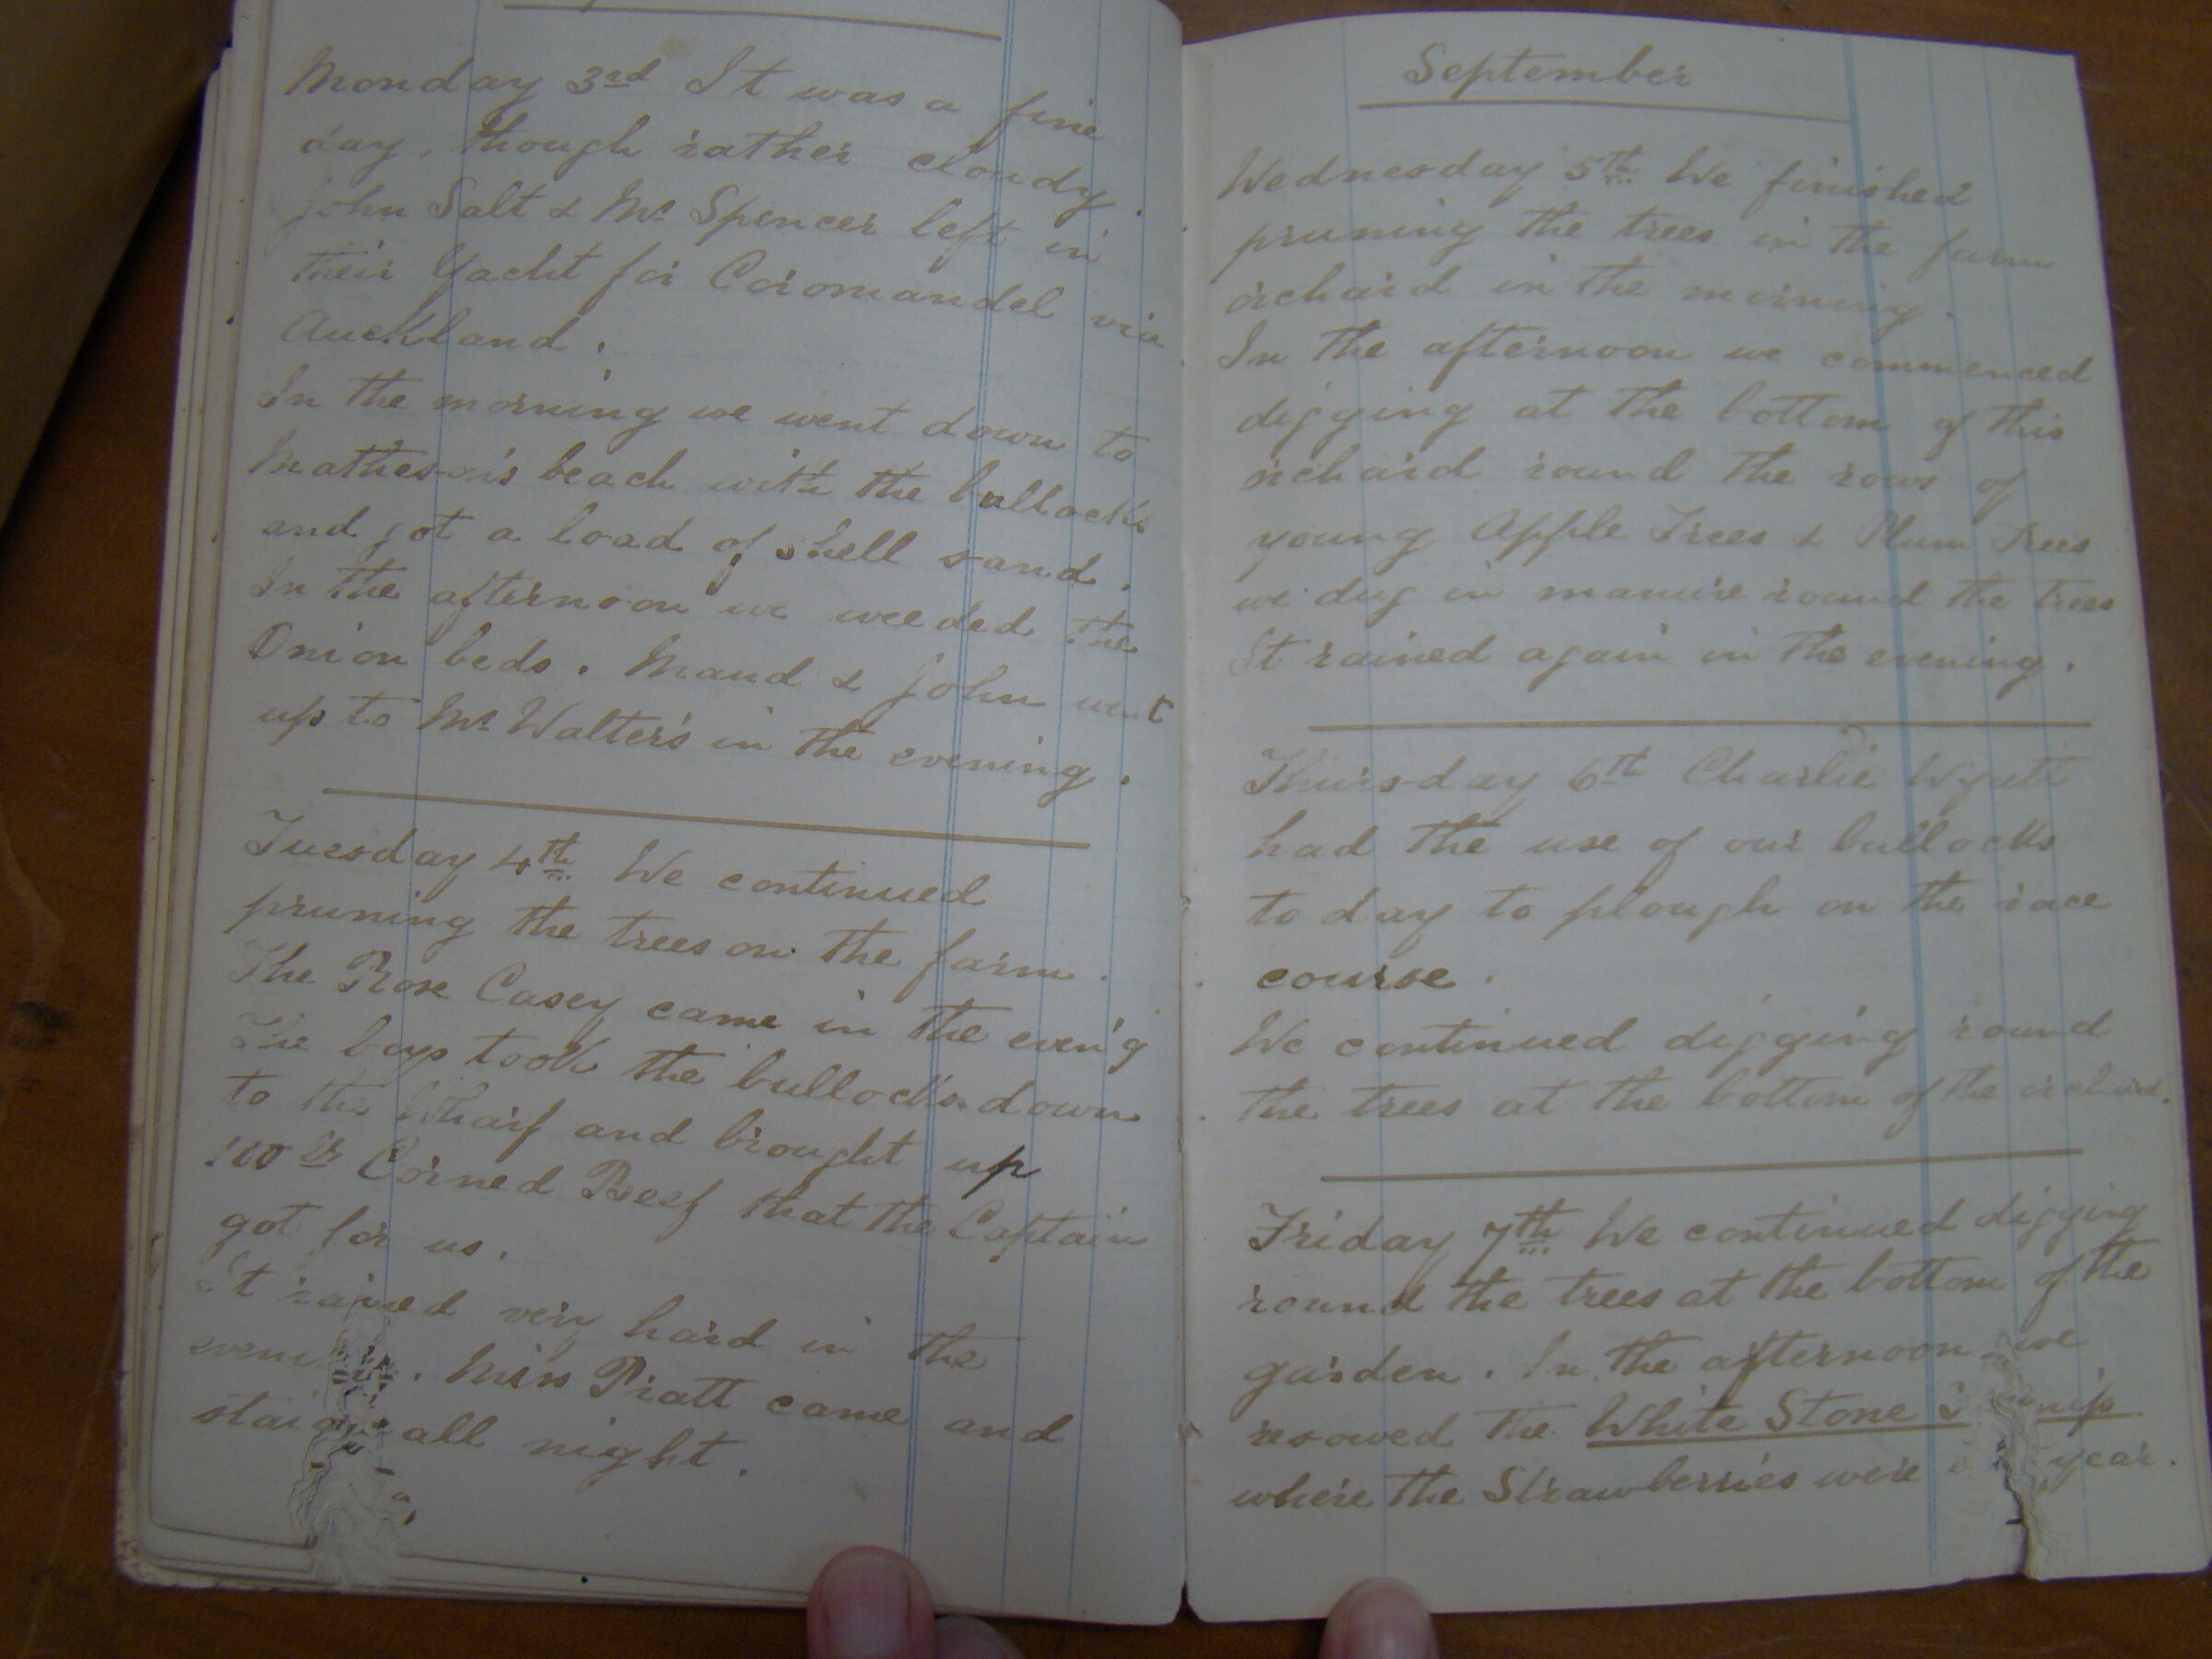 Monday 3rd It was a fine
day, though rather cloudy.
John Salt & Mr Spencer left in
their Yacht for Coromandel via
Auckland.
In the morning we went down to
Matheson's beach with the bullocks
and got a load of shell sand.
In the afternoon we weeded the
Onion beds. Maud & John went
up to Mr Walter's in the evening.
Tuesday 4th We continued
pruning the trees on the farm.
The Rose Casey came in the even'g
The boys took the bullocks down
to the Wharf and brought up
100 lbs Corned Beef that the Captain
got for us.
It rained very hard in the
Miss Pratt came and
all night.
September
Wednesday 5th We finished
pruning the trees in the farm
orchard in the morning.
In the afternoon we commenced
digging at the bottom of this
orchard round the rows of
young Apple Trees & Plum Trees
we dug in manure round the trees
It rained again in the evening.
Thursday 6th Charlie Wyatt
had the use of our bullocks
to day to plough on the race
course.
We continued digging round
the trees at the bottom of the orchard.
Friday 7th We continued digging
round the trees at the bottom of the
garden. In the afternoon we
resowed the White Stone
where the Strawberries were year.